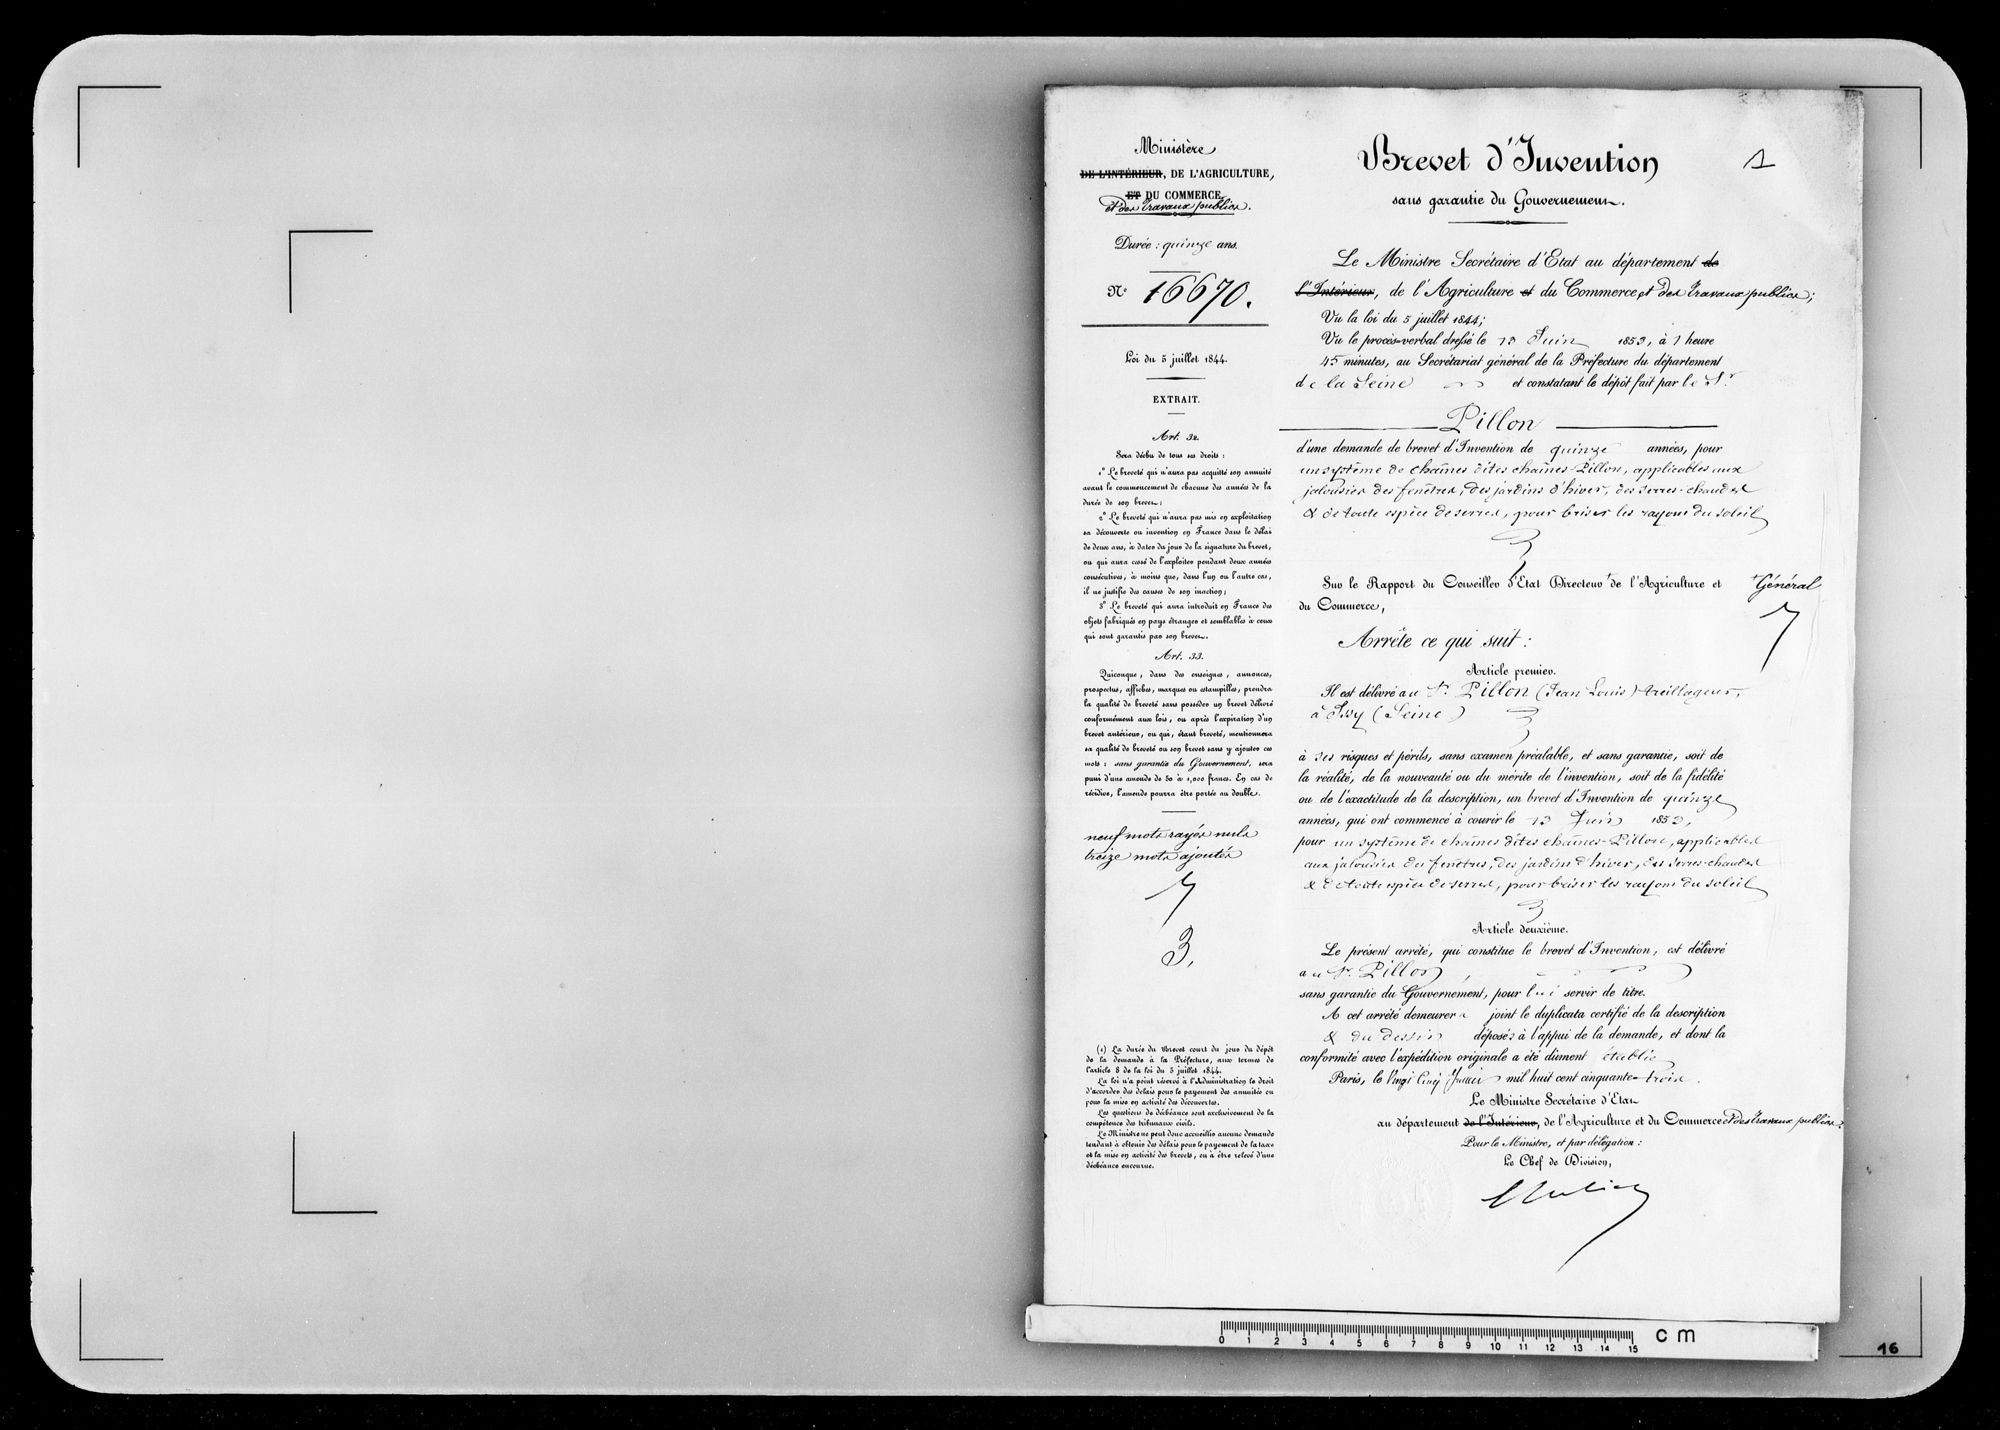 Ministère
DE L'INTÉRIEUR, DE L'AGRICULTURE,
ET DU COMMERCE
et des Travaux publics.
Durée : quinze ans.
N° 16670.
Loi du 5 juillet 1844.
EXTRAIT.
Art. 32.
Sera déchu de tous ses droits :
1° Le breveté qui n'aura pas acquitté son annuité
avant le commencement de chacune des années de la
durée de son brevet ;
2° Le breveté qui n'aura pas mis en exploitation
sa découverte ou invention en France dans le délai
de deux ans, à dater du jour de la signature du brevet,
ou qui aura cessé de l'exploiter pendant deux années
consécutives, à moins que, dans l'un ou l'autre cas,
il ne justifie des causes de son inaction ;
3° Le breveté qui aura introduit en France des
objets fabriqués en pays étranger et semblables à ceux
qui sont garantis par son brevet.
Art. 33.
Quiconque, dans des enseignes, annonces,
prospectus, affiches, marques ou estampilles, prendra
la qualité de breveté sans posséder un brevet délivré
conformément aux lois, ou après l'expiration d'un
brevet antérieur, ou qui, étant breveté, mentionnera
sa qualité de breveté ou son brevet sans y ajouter ces
mots : sans garantie du Gouvernement, sera
puni d'une amende de 50 à 1,000 francs. En cas de
récidive, l'amende pourra être portée au double.
neuf mots rayés nuls
treize mots ajoutés
(1) La durée du Brevet court du jour du dépôt
de la demande à la Préfecture, aux termes de
l'article 8 de la loi du 5 juillet 1844.
La loi n'a point réservé à l'Administration le droit
d'accorder des délais pour le payement des annuités ou
pour la mise en activité des découvertes.
Les questions de déchéance sont exclusivement de la
compétence des tribunaux civils.
Le Ministre ne peut donc accueillir aucune demande
tendant à obtenir des délais pour le payement de la taxe
et la mise en activité des brevets, ou à être relevé d'une
déchéance encourue.
Brevet d'Invention
1
sans garantie du Gouvernement.
Le Ministre Secrétaire d'Etat au département de
l'Intérieur, de l'Agriculture et du Commerce et des Travaux publics ;
Vu la loi du 5 juillet 1844 ;
Vu le procès-verbal dressé le 13 Juin 1853, à 1 heure
45 minutes, au Secrétariat général de la Préfecture du département
de la Seine et constatant le dépôt fait par le Sr
Pillon
d'une demande de brevet d'Invention de quinze années, pour
un système de chaînes dites chaînes-Pillon, applicables aux
jalousies des fenêtres, des jardins d'hiver, des serres-chaudes
& de toute espèce de serres, pour briser les rayons du soleil
Sur le Rapport du Conseiller d'Etat Directeur + de l'Agriculture et
+ Général
du Commerce,
Arrête ce qui suit :
Article premier.
Il est délivré au Sr. Pillon (Jean Louis) treillageur,
à Issy (Seine)
à ses risques et périls, sans examen préalable, et sans garantie, soit de
la réalité, de la nouveauté ou du mérite de l'invention, soit de la fidélité
ou de l'exactitude de la description, un brevet d'Invention de quinze
années, qui ont commencé à courir le 13 Juin 1853,
pour un système de chaînes dites chaînes-Pillon, applicables
aux jalousies des fenêtres, des jardins d'hiver, des serres-chaudes
& de toute espèce de serres, pour briser les rayons du soleil
Article deuxième.
Le présent arrêté, qui constitue le brevet d'Invention, est délivré
au Sr. Pillon
sans garantie du Gouvernement, pour lui servir de titre.
A cet arrêté demeurera joint le duplicata certifié de la description
& du dessin déposés à l'appui de la demande, et dont la
conformité avec l'expédition originale a été dûment établie
Paris, le Vingt Cinq Juillet mil huit cent cinquante-trois.
Le Ministre Secrétaire d'Etat
au département de l'Intérieur, de l'Agriculture et du Commerce et des Travaux publics.
Pour le Ministre, et par délégation :
Le Chef de Division,
0 1 2 3 4 5 6 7 8 9 10 11 12 13 14 15 cm
16